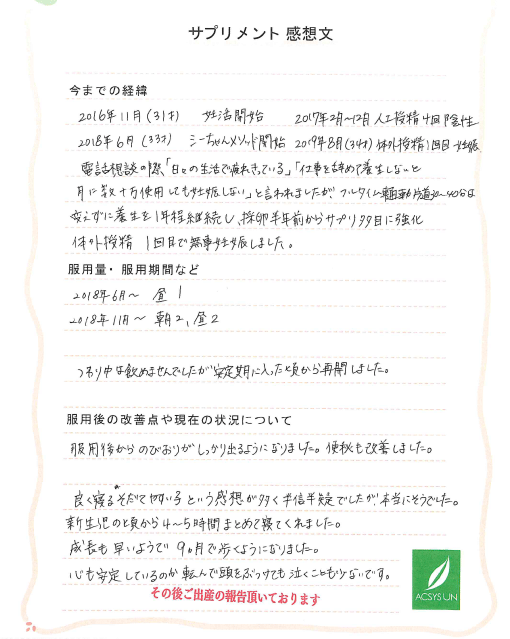 サプリメント 感想文
今までの経緯
2016年11月(31才) 妊活開始 2017年2月〜12月 人工授精4回陰性
2018年6月(33才) シーちゃんメソッド開始 2019年8月(34才)体外授精1回目 妊娠
電話相談の際、「日々の生活で疲れきっている」「仕事を辞めて養生しないと
月に数十万使用しても妊娠しない」と言われましたが、フルタイム勤務 片道30〜40分は
変えずに養生を1年程継続し、採卵半年前からサプリ多目に強化
体外授精 1回目で無事妊娠しました。
服用量・服用期間など
2018年6月〜 昼1
2018年11月〜 朝2、昼2
つわり中は飲めませんでしたが安定期に入った頃から再開しました。
服用後の改善点や現在の状況について
服用後からのびおりがしっかり出るようになりました。便秘も改善しました。
良く寝る そだてやすい子という感想が多く半信半疑でしたが、本当にそうでした。
新生児の頃から4〜5時間まとめて寝てくれました。
成長も早いようで9ヵ月で歩くようになりました。
心も安定しているのか転んで頭をぶつけても泣くことも少ないです。
その後ご出産の報告頂いております
ACSYSUN